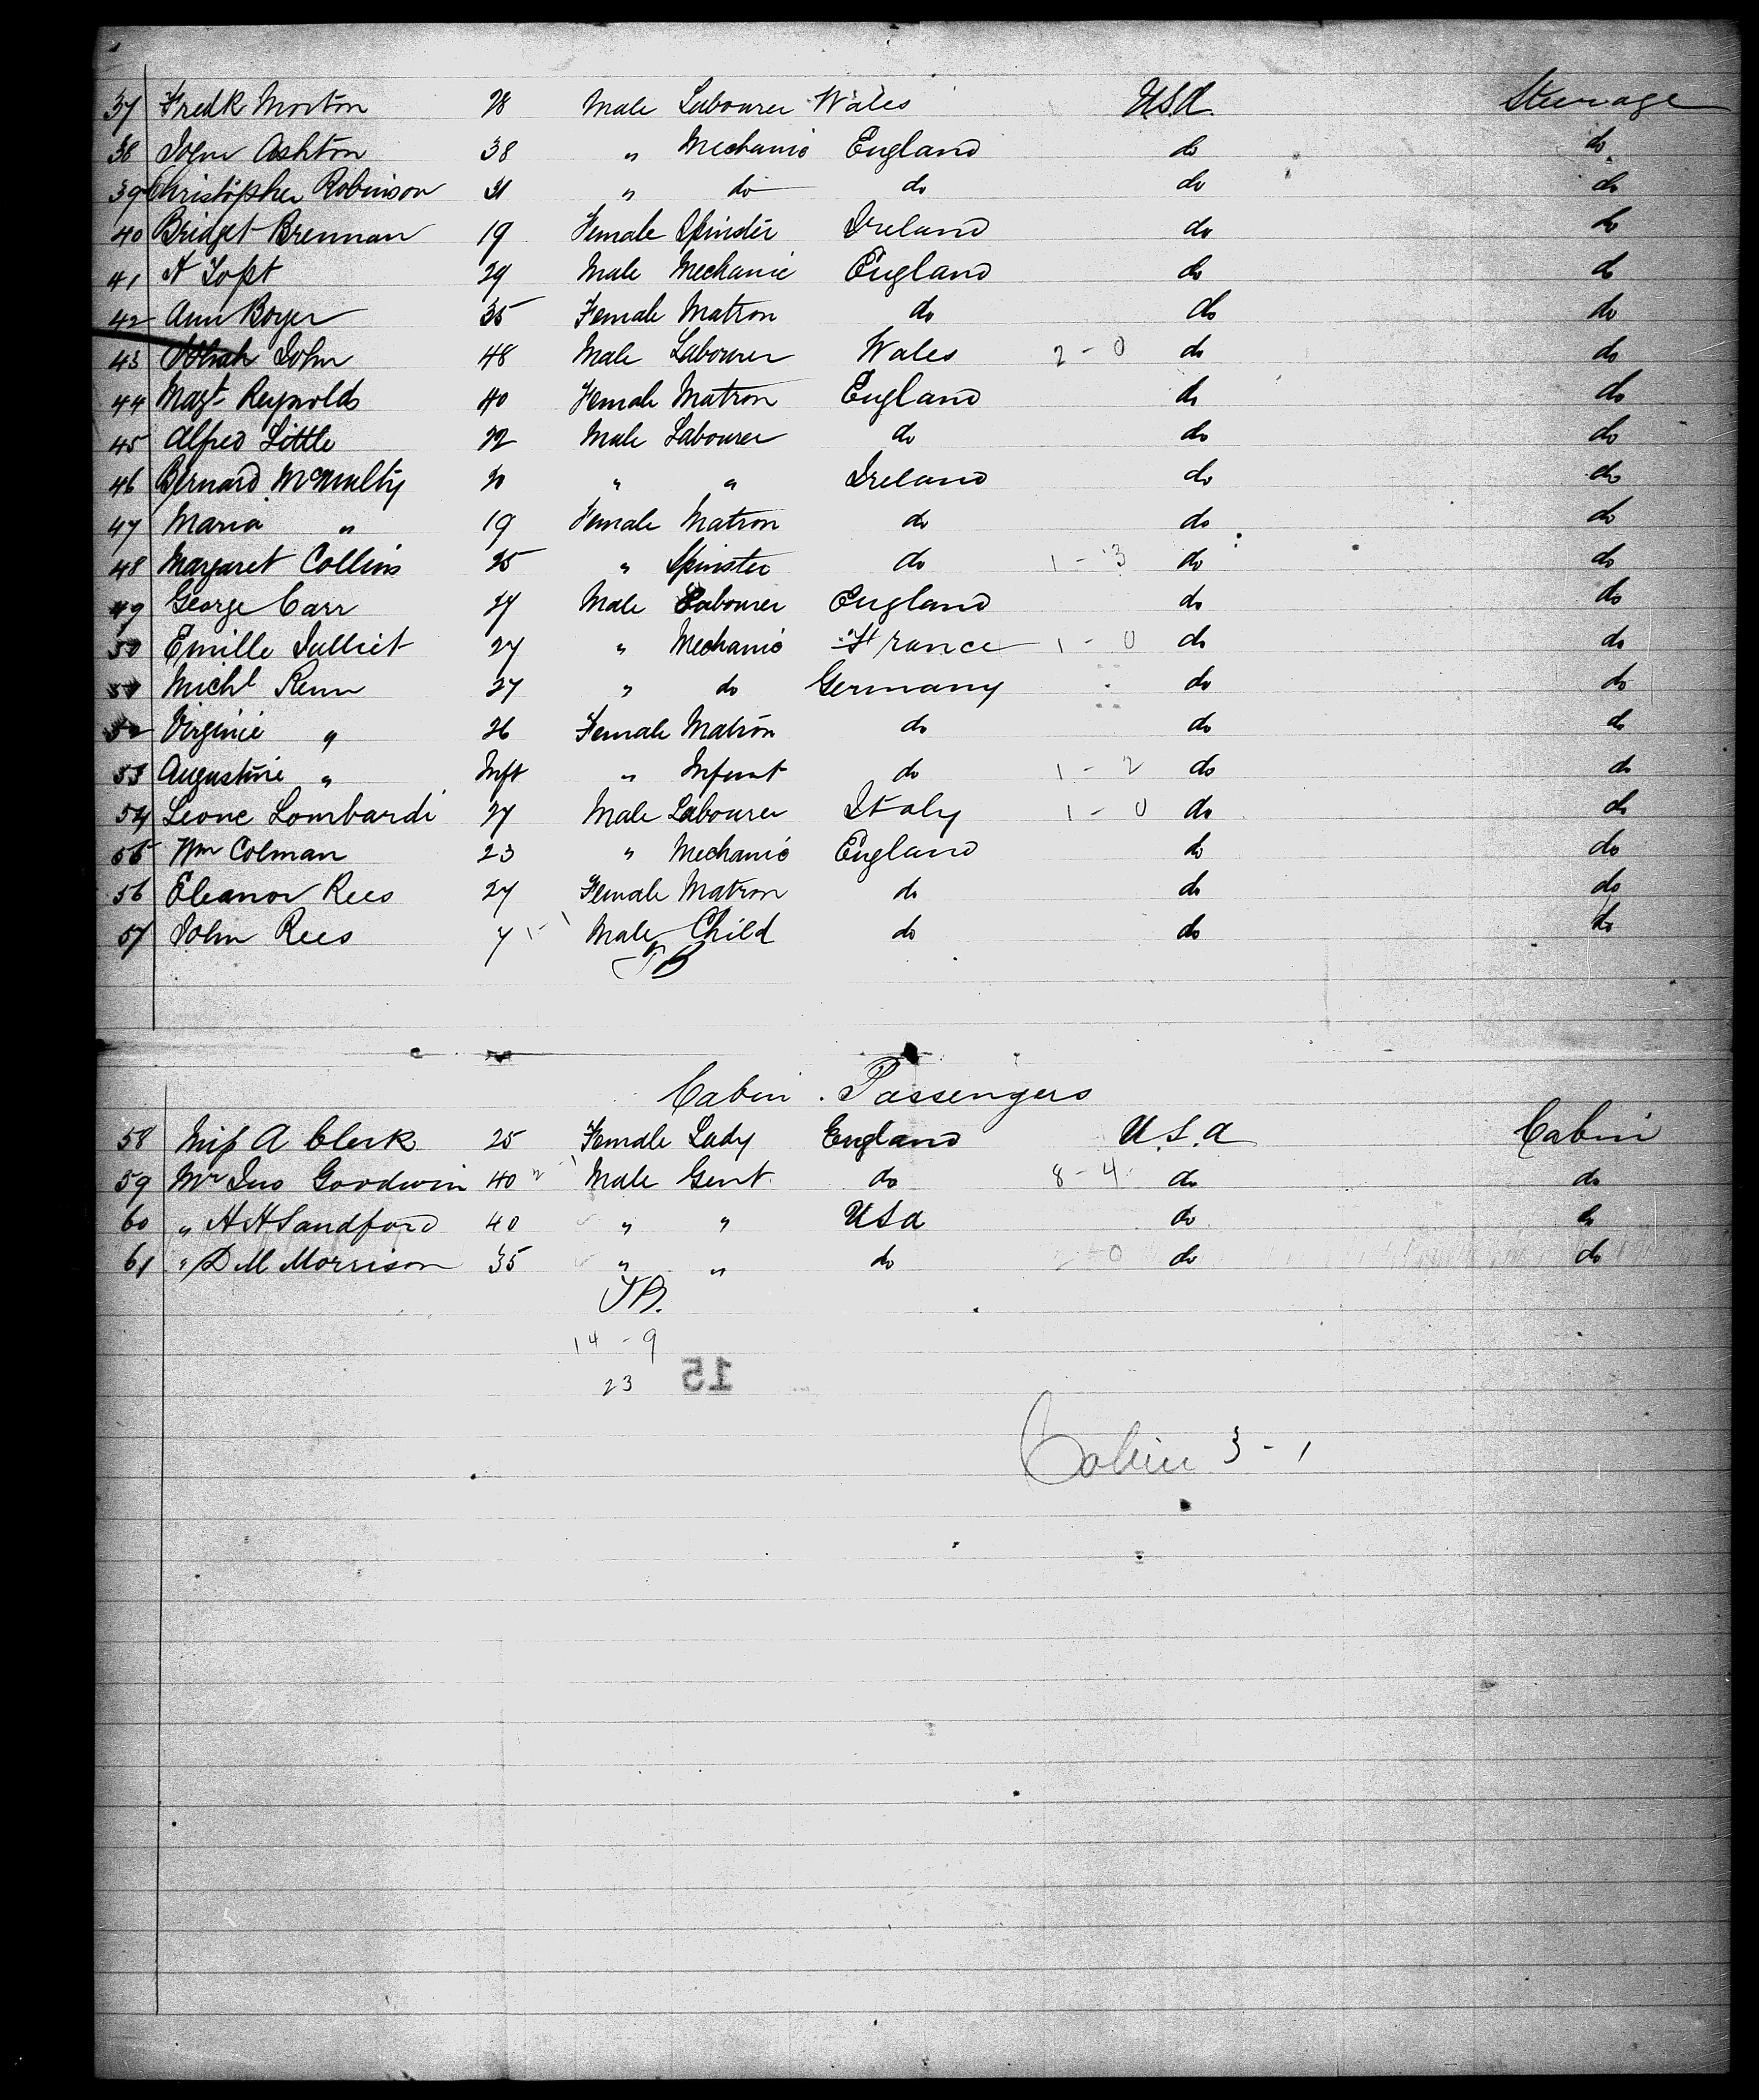 37 Fredk Morton 28 Male Labourer Wales U.S.A. Steerage
38 John Ashton 38 " Mechanic England do do
39 Christopher Robinson 31 " do do do do
40 Bridget Brennan 19 Female Spinster Ireland do do
41 A 29 Male Mechanic England do do
42 Ann Boyer 35 Female Matron do do do
43 John 48 Male Labourer Wales 2-0 do do
44 Magt Reynolds 40 Female Matron England do do
45 Alfred Little 22 Male Labourer do do do
46 Bernard McNulty 20 " " Ireland do do
47 Maria " 19 Female Matron do do do
48 Margaret Collins 25 " Spinster do 1-3 do do
49 George Carr 27 Male Labourer England do do
50 Emille Julliet 27 " Mechanic France 1-0 do do
51 Michl Renn 27 " do Germany do do
52 Virginie " 26 Female Matron do do do
53 Augustine " Inft " Infant do 1-2 do do
54 Leone Lombardi 27 Male Labourer Italy 1-0 do do
55 Wm Colman 23 " Mechanic England do do
56 Eleanor Rees 27 Female Matron do do do
57 John Rees 7 Male Child do do do
Cabin Passengers
58 Miss A Clerk 25 Female Lady England U.S.A Cabin
59 Mr Jno Goodwin 40 Male Gent do 8-4 do do
60 " H H Sandford 40 " " USA do do
61 " D M Morrison 35 " " do 2-0 do do
14-9
23 15
Cabin 3-1